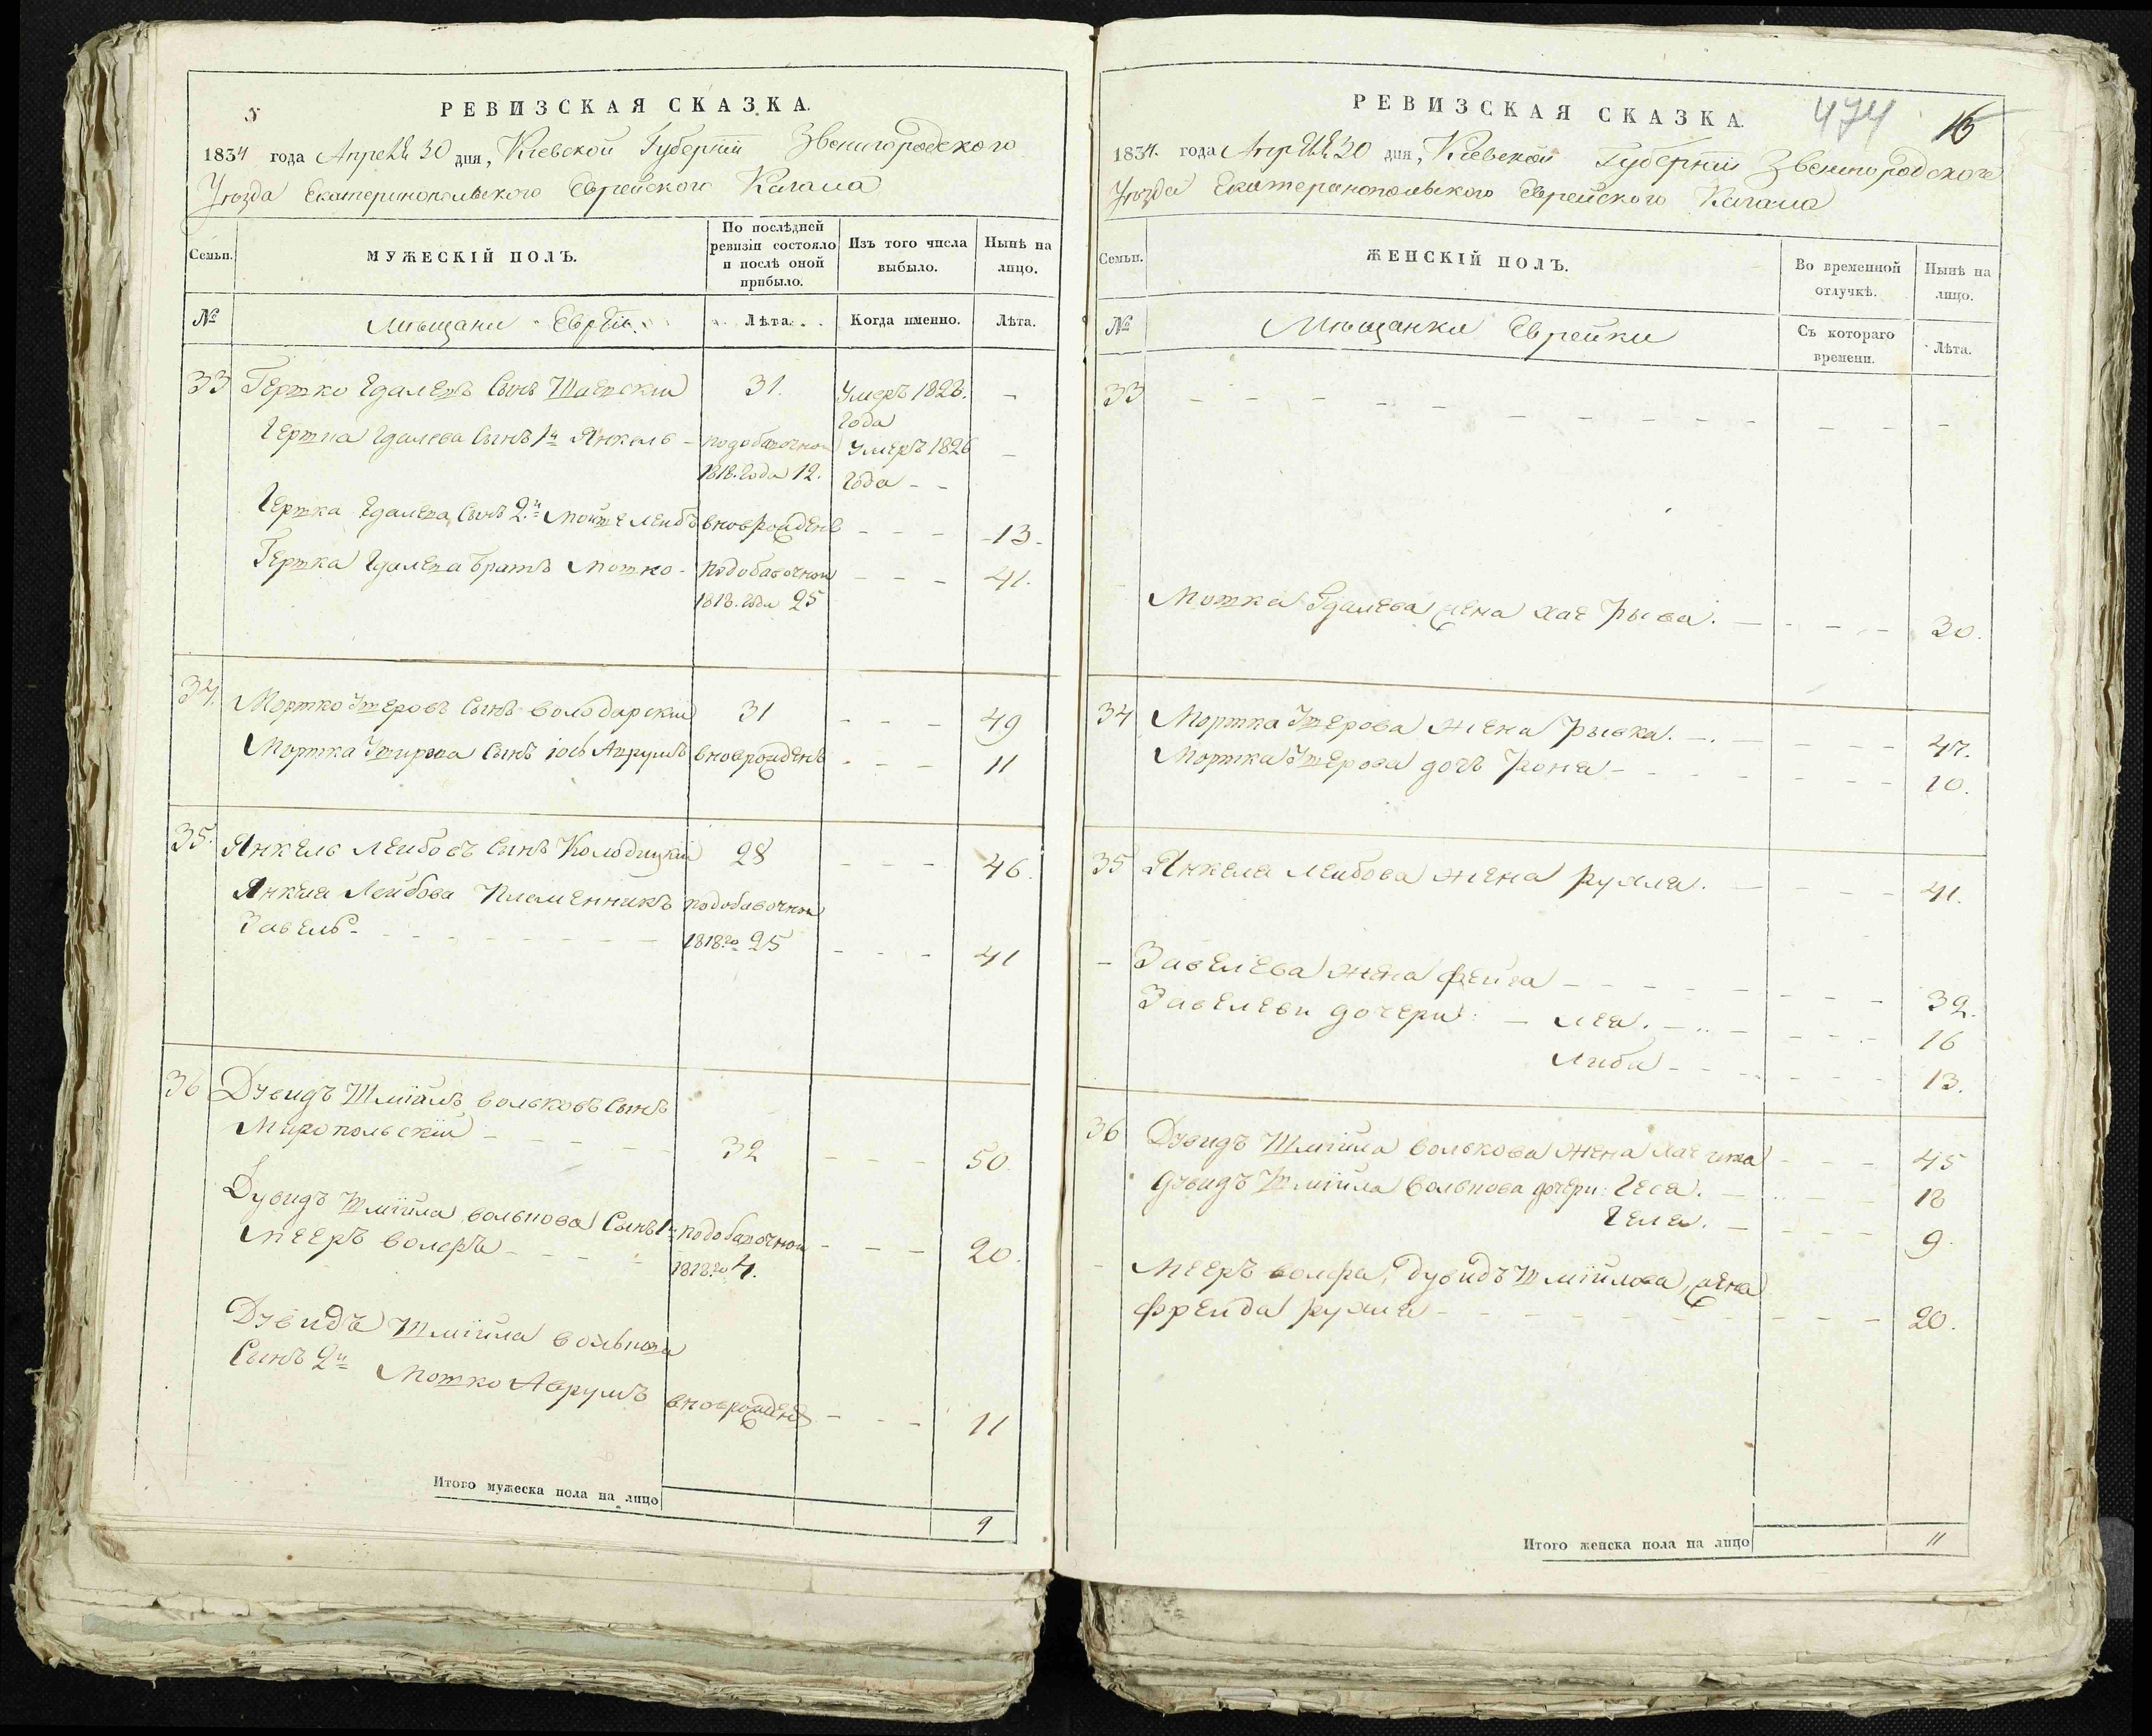 5
РЕВИЗСКАЯ СКАЗКА.
1834 года Апреля 30 дня, Кіевской Губерніи Звенигородского
Уѣзда Екатеринопольского Еврейского Кагала
Семьи.
МУЖЕСКІЙ ПОЛЪ.
По послѣдней ревизіи состояло и послѣ оной прибыло.
Изъ того числа выбыло.
Нынѣ на лицо.
№
Мѣщани Евреи.
Лѣта.
Когда именно.
Лѣта.
33 Гершко Гдалевъ Сынъ 31. Умеръ 1823. года -
Гершка Гдалева Сынъ 1й Янкель - подобавочной 1818. года 12. Умеръ 1826 года - - -
Гершка Гдалева Сынъ 2й Мойше Лейбъ вноврожденъ - - - 13-
Гершка Гдалева братъ Мошко - подобавочной 1818. года 25 - - - 41.
34. Мортко Ушеровъ Сынъ Володарскій 31 - - - 49
Мортка Ушерова Сынъ Іось Аврумъ вноврожденъ - - - 11
35. Янкель Лейбовъ Сынъ Колодицкій 28 - - - 46.
Янкеля Лейбова Племенникъ подобавочной
Завель - 1818го 25 - - - 41
36 Дувидъ Шміилъ Вольковъ Сынъ
Миропольскій - 32 - - - 50.
Дувидъ Шміила Волькова Сынъ 1й подобавочной
Мееръ Волфъ - 1818го 4. - - - 20.
Дувидъ Шміила Волькова
Сынъ 2й Мошко Аврумъ вноврожденъ - - - 11
Итого мужеска пола на лицо 9
РЕВИЗСКАЯ СКАЗКА.
474
16
1834. года Апреля 30 дня, Кіевской Губерніи Звенигородского
Уѣзда Екатеринопольского Еврейского Кагала
Семьи.
ЖЕНСКІЙ ПОЛЪ.
Во временной отлучкѣ.
Нынѣ на лицо.
№
Мѣщанки Еврейки
Съ котораго времени.
Лѣта.
33 - - - - - - - - - - - - -
Мошка Гдалева жена Хае Рыва. - - - - 30.
34 Мортка Ушерова жена Рывка. - - - - 47.
Мортка Ушерова дочь - - - - 10.
35 Янкеля Лейбова жена Рухля. - - - - 41.
- Завелева жена Фейга - - - - 32.
Завелеви дочери: - Лея. - - - - 16
Либа - - - - 13.
36 Дувидъ Шміила Волькова жена - - - 45
Дувидъ Шміила Волькова дочери: Геся. - - - 18
Геля. - - - - 9.
- Мееръ Волфа, Дувидъ Шміилова, жена
Фрейда Рухля - - - - 20.
Итого женска пола на лицо 11